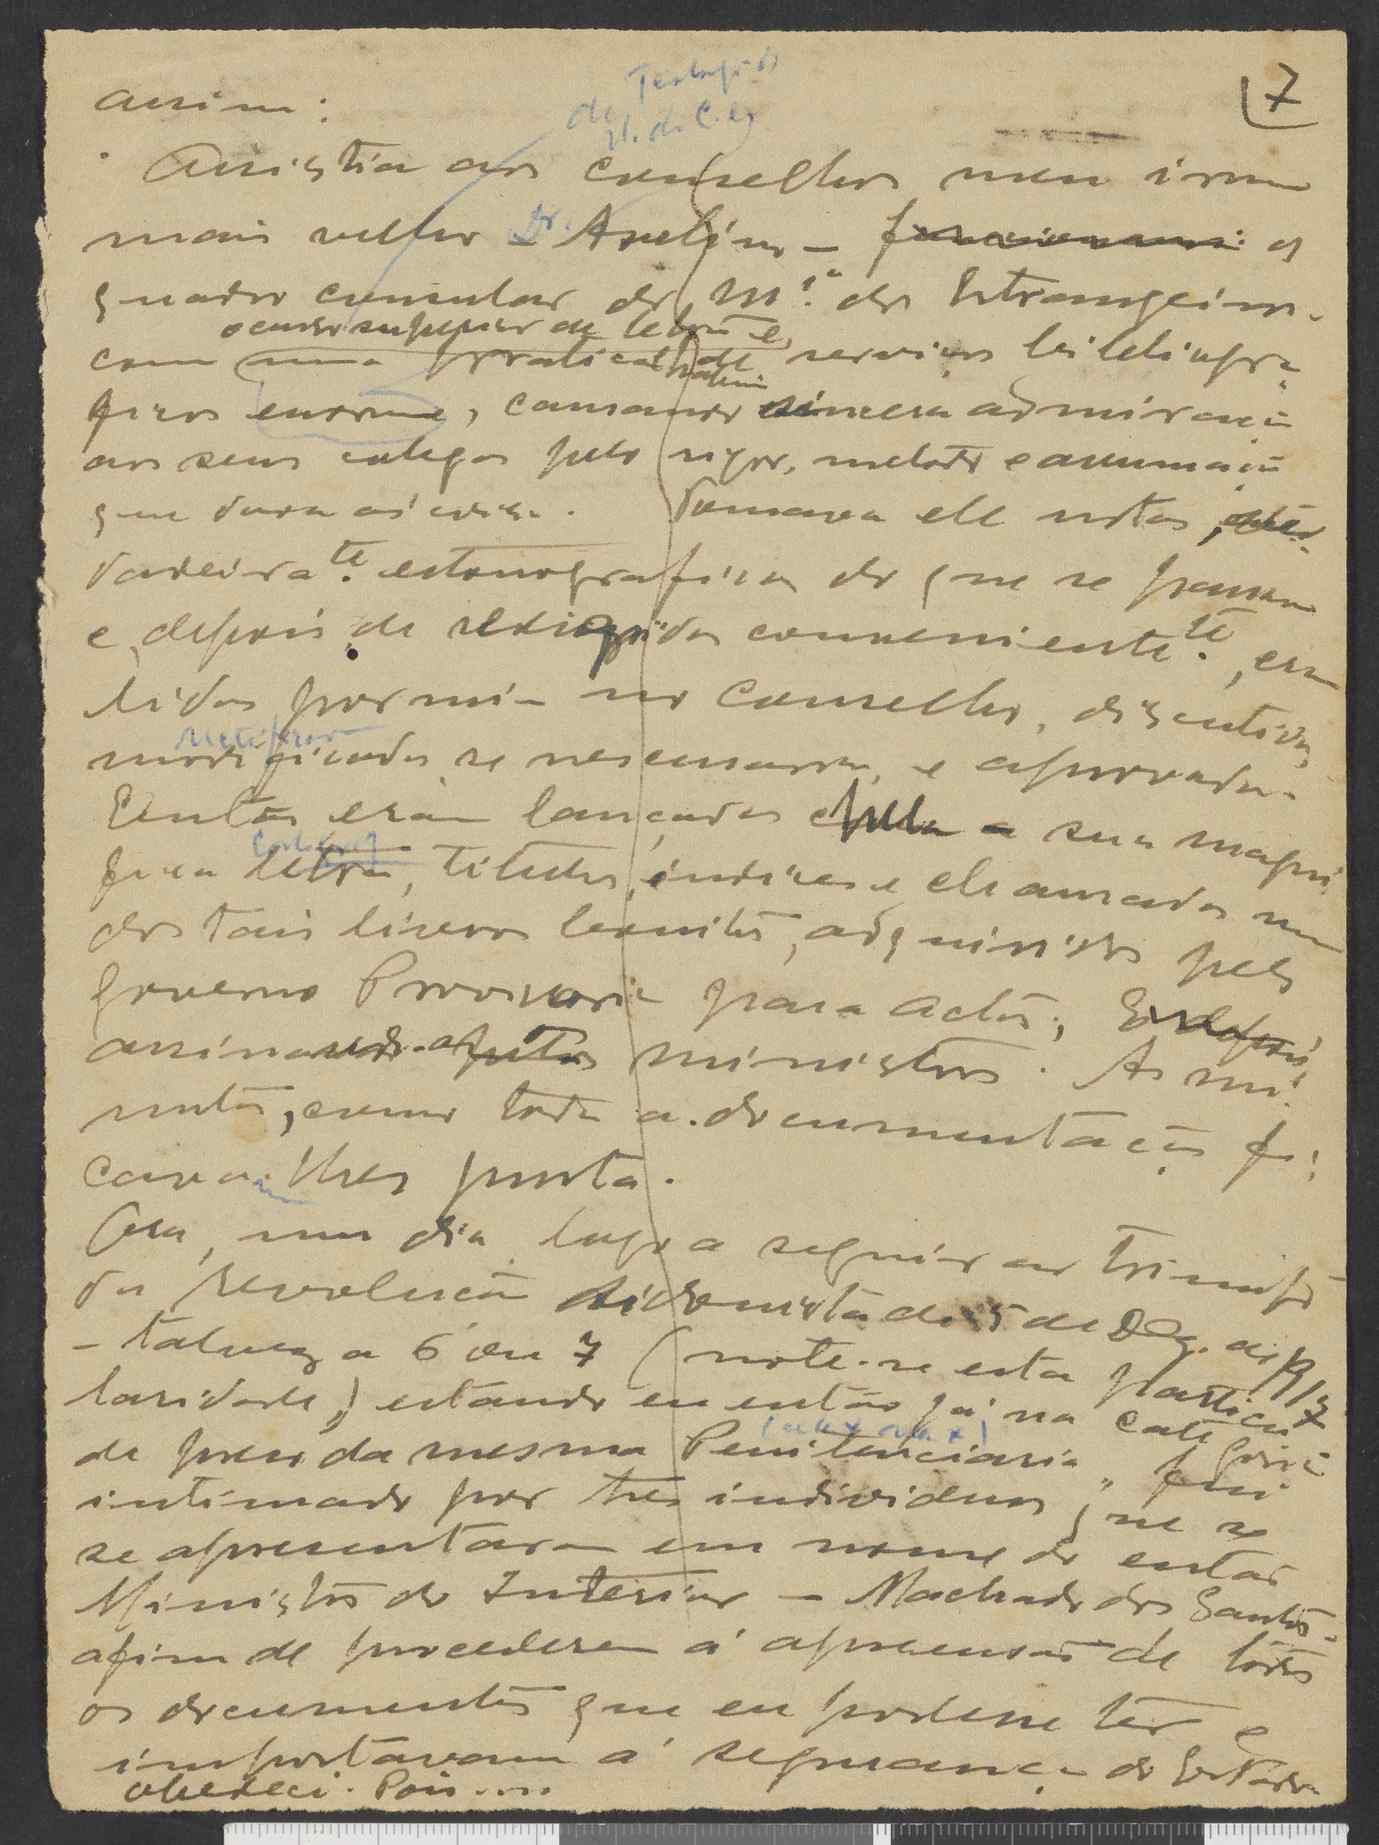 7
assim:
Assistia aos conselhos meu irmão
mais velho Dr. Avelino - funcionario do
quadro consular do M.º dos Estrangeiros.
o curso superior de letras e
com uma pratica de serviços
enorme, causando sincera admiração
aos seus colegas pelo rigor, metodo e arrumação
que dava ás coisas. Tomava ele notas,
dadeirate. estenografica do que se passava
e, depois de redigidas convenientete., eram
lidas por mim no conselho, discutidas,
modificadas, se necessario, e aprovadas.
Então eram lançadas pela sua magni-
fica letra, titulos, indices e chamadas num
dos tais livros bonitos, adquiridos pelo
Governo Provisorio para actos, E depois,
assinados pelos ministros. As mi-
nutas, como toda a documentação fi-
cavam-lhes junta.
Ora, um dia, logo a seguir ao triunfo
da revolução sidonista de 5 de Dez. de 1917
- talvez a 6 ou 7 (note-se esta particu-
laridade,) estando eu então já na categoria
de preso da mesma Penitenciaria, fui
intimado por tres individuos que se
se apresentaram em nome do então
Ministro do Interior - Machado dos Santos -
afim de procederem á apreensão de todos
os documentos que eu podesse ter e
importavam á segurança do Estado
obedeci. Pois....